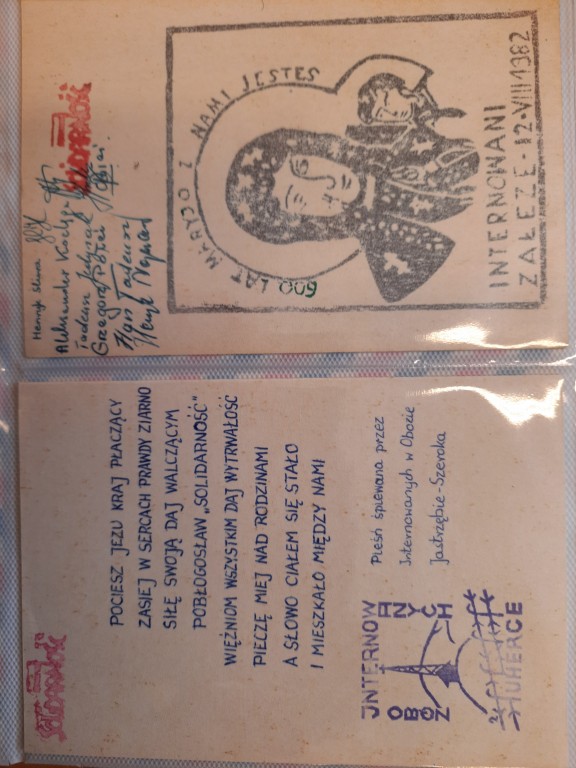 Solidarność
Henryk Sliwa
Aleksander
Tadeusz
Grzegorz
Tadeusz
Henryk
600 LAT MARYJO Z NAMI JESTEŚ
600
INTERNOWANI
ZAŁĘŻE-12-VIII-1982
Solidarność
POCIESZ JEZU KRAJ PŁACZĄCY
ZASIEJ W SERCACH PRAWDY ZIARNO
SIŁĘ SWOJĄ DAJ WALCZĄCYM
POBŁOGOSŁAW „SOLIDARNOŚĆ"
WIĘŹNIOM WSZYSTKIM DAJ WYTRWAŁOŚĆ
PIECZĘ MIEJ NAD RODZINAMI
A SŁOWO CIAŁEM SIĘ STAŁO
I MIESZKAŁO MIĘDZY NAMI
Pieśń śpiewana przez
Internowanych w Obozie
Jastrzębie-Szeroka
OBÓZ
INTERNOWANYCH
UHERCE